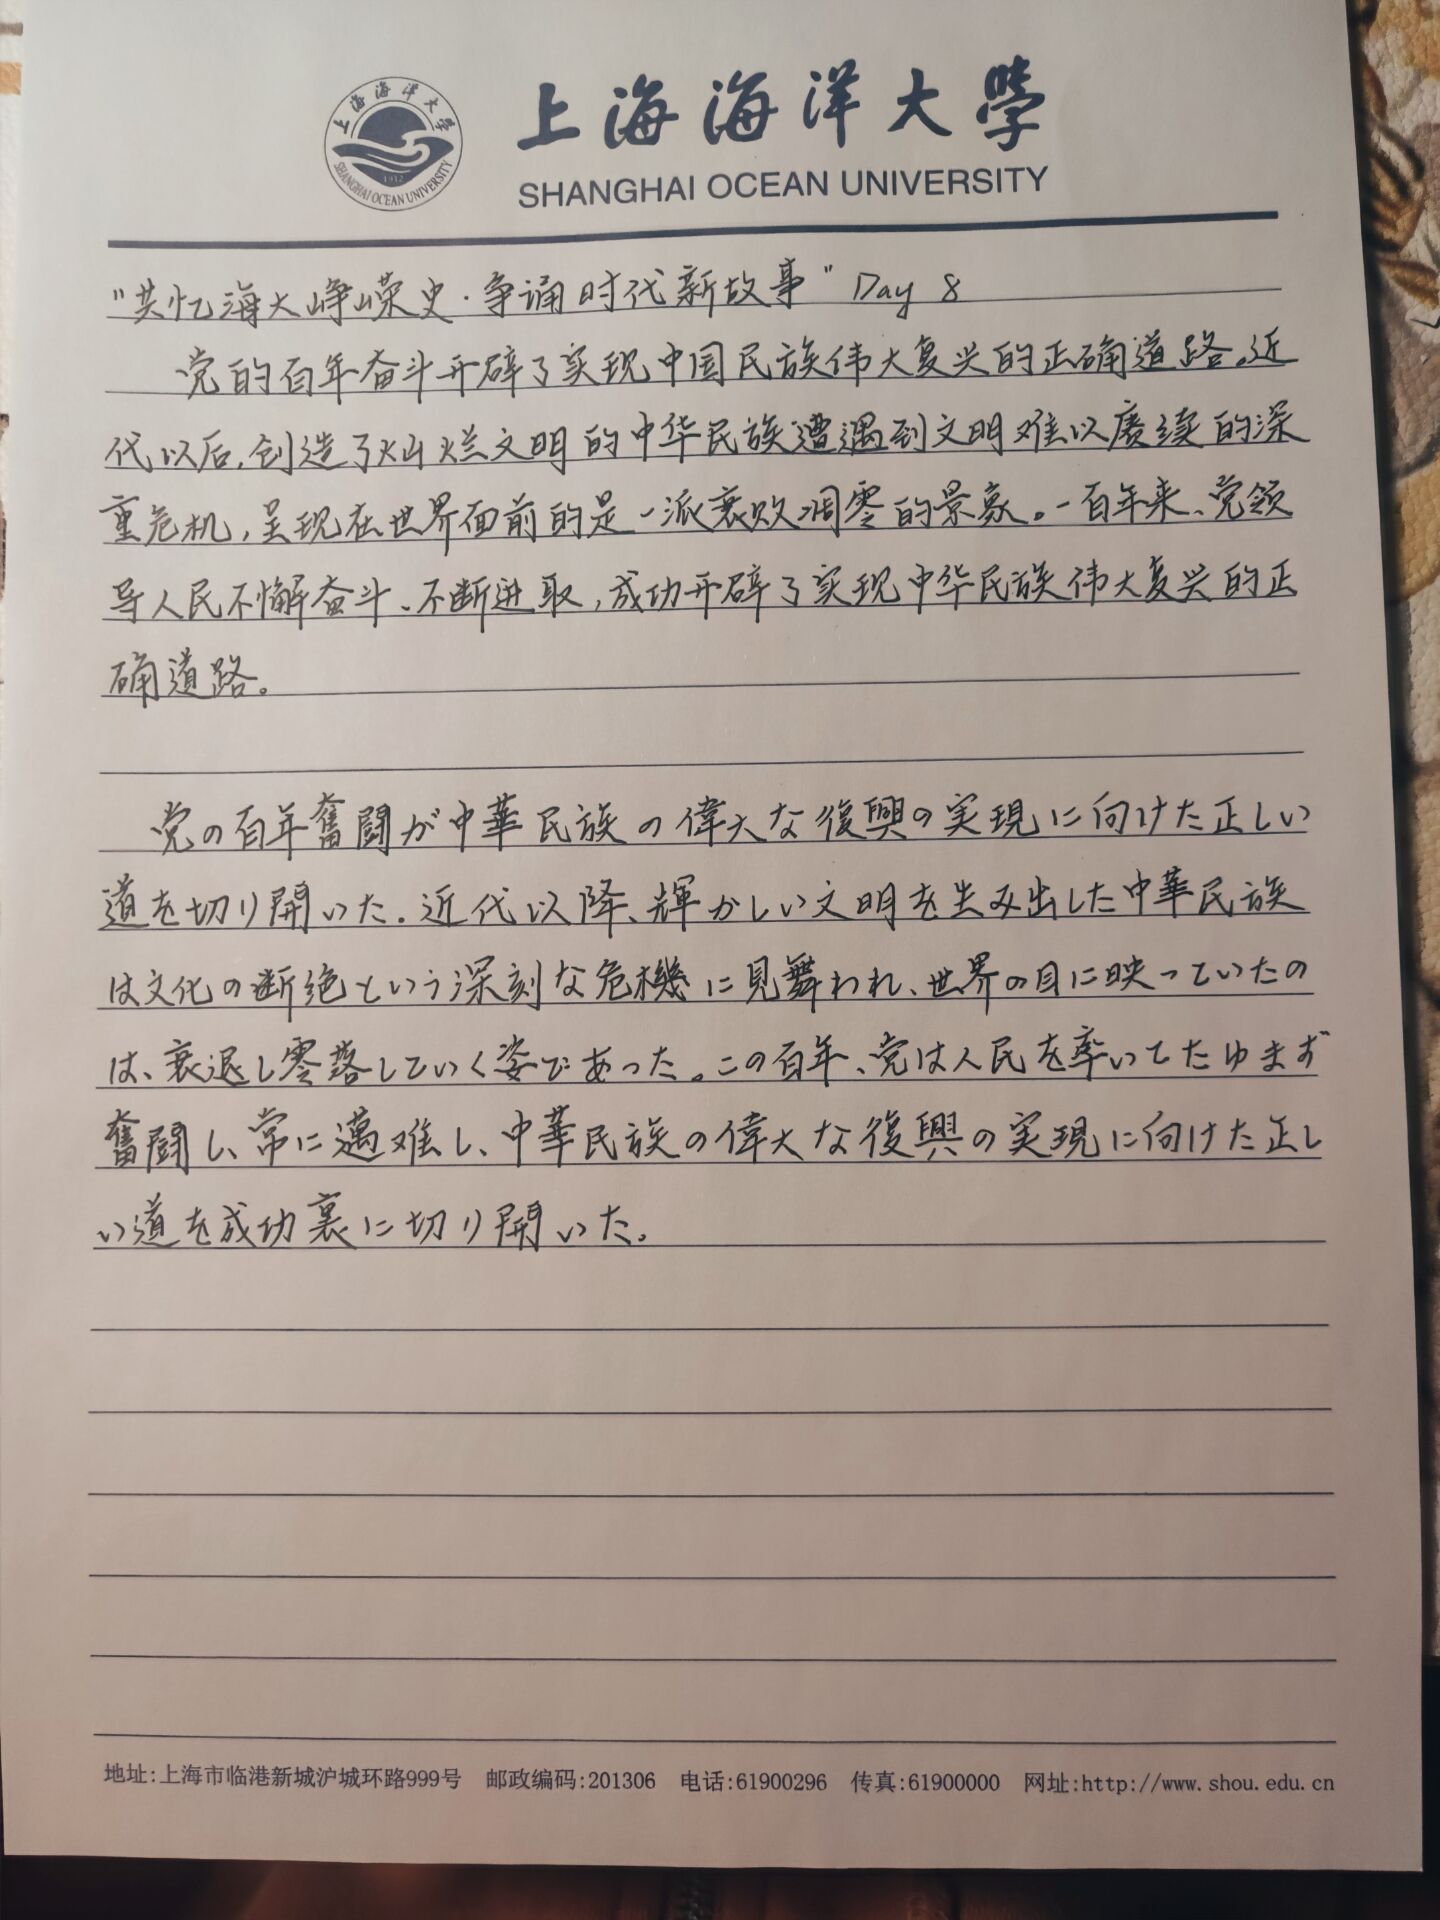 上海海洋大學
SHANGHAI OCEAN UNIVERSITY
上海海洋大学
1912
SHANGHAI OCEAN UNIVERSITY
"共忆海大峥嵘史·争诵时代新故事" Day 8
党的百年奋斗开辟了实现中国民族伟大复兴的正确道路。近
代以后,创造了灿烂文明的中华民族遭遇到文明难以赓续的深
重危机,呈现在世界面前的是一派衰败凋零的景象。一百年来、党领
导人民不懈奋斗、不断进取,成功开辟了实现中华民族伟大复兴的正
确道路。
党の百年奮闘が中華民族の偉大な復興の実現に向けた正しい
道を切り開いた。近代以降、輝かしい文明を生み出した中華民族
は文化の断绝という深刻な危機に見舞われ、世界の目に映っていたの
は、衰退し零落していく姿であった。この百年、党は人民を率いてたゆまず
奮闘し、常に邁难し、中華民族の偉大な復興の実現に向けた正し
い道を成功裏に切り開いた。
地址:上海市临港新城沪城环路999号 邮政编码:201306 电话:61900296 传真:61900000 网址:http://www.shou.edu.cn